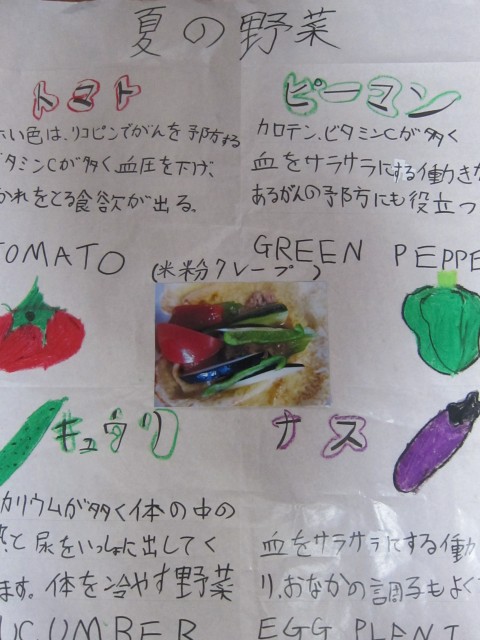 夏の野菜
トマト
ピーマン
い色は、リコピンでがんを予防する
タミンCが多く血圧を下げ、
かれをとる食欲が出る。
カロテン、ビタミンCが多く
血をサラサラにする働きが
あるがんの予防にも役立つ
TOMATO
GREEN PEPPE
(米粉クレープ)
キュウリ
ナス
カリウムが多く体の中の
熱と尿をいっしょに出してく
ます。体を冷やす野菜
UCUMBER
血をサラサラにする働
り、おなかの調子もよく
EGG PLANT